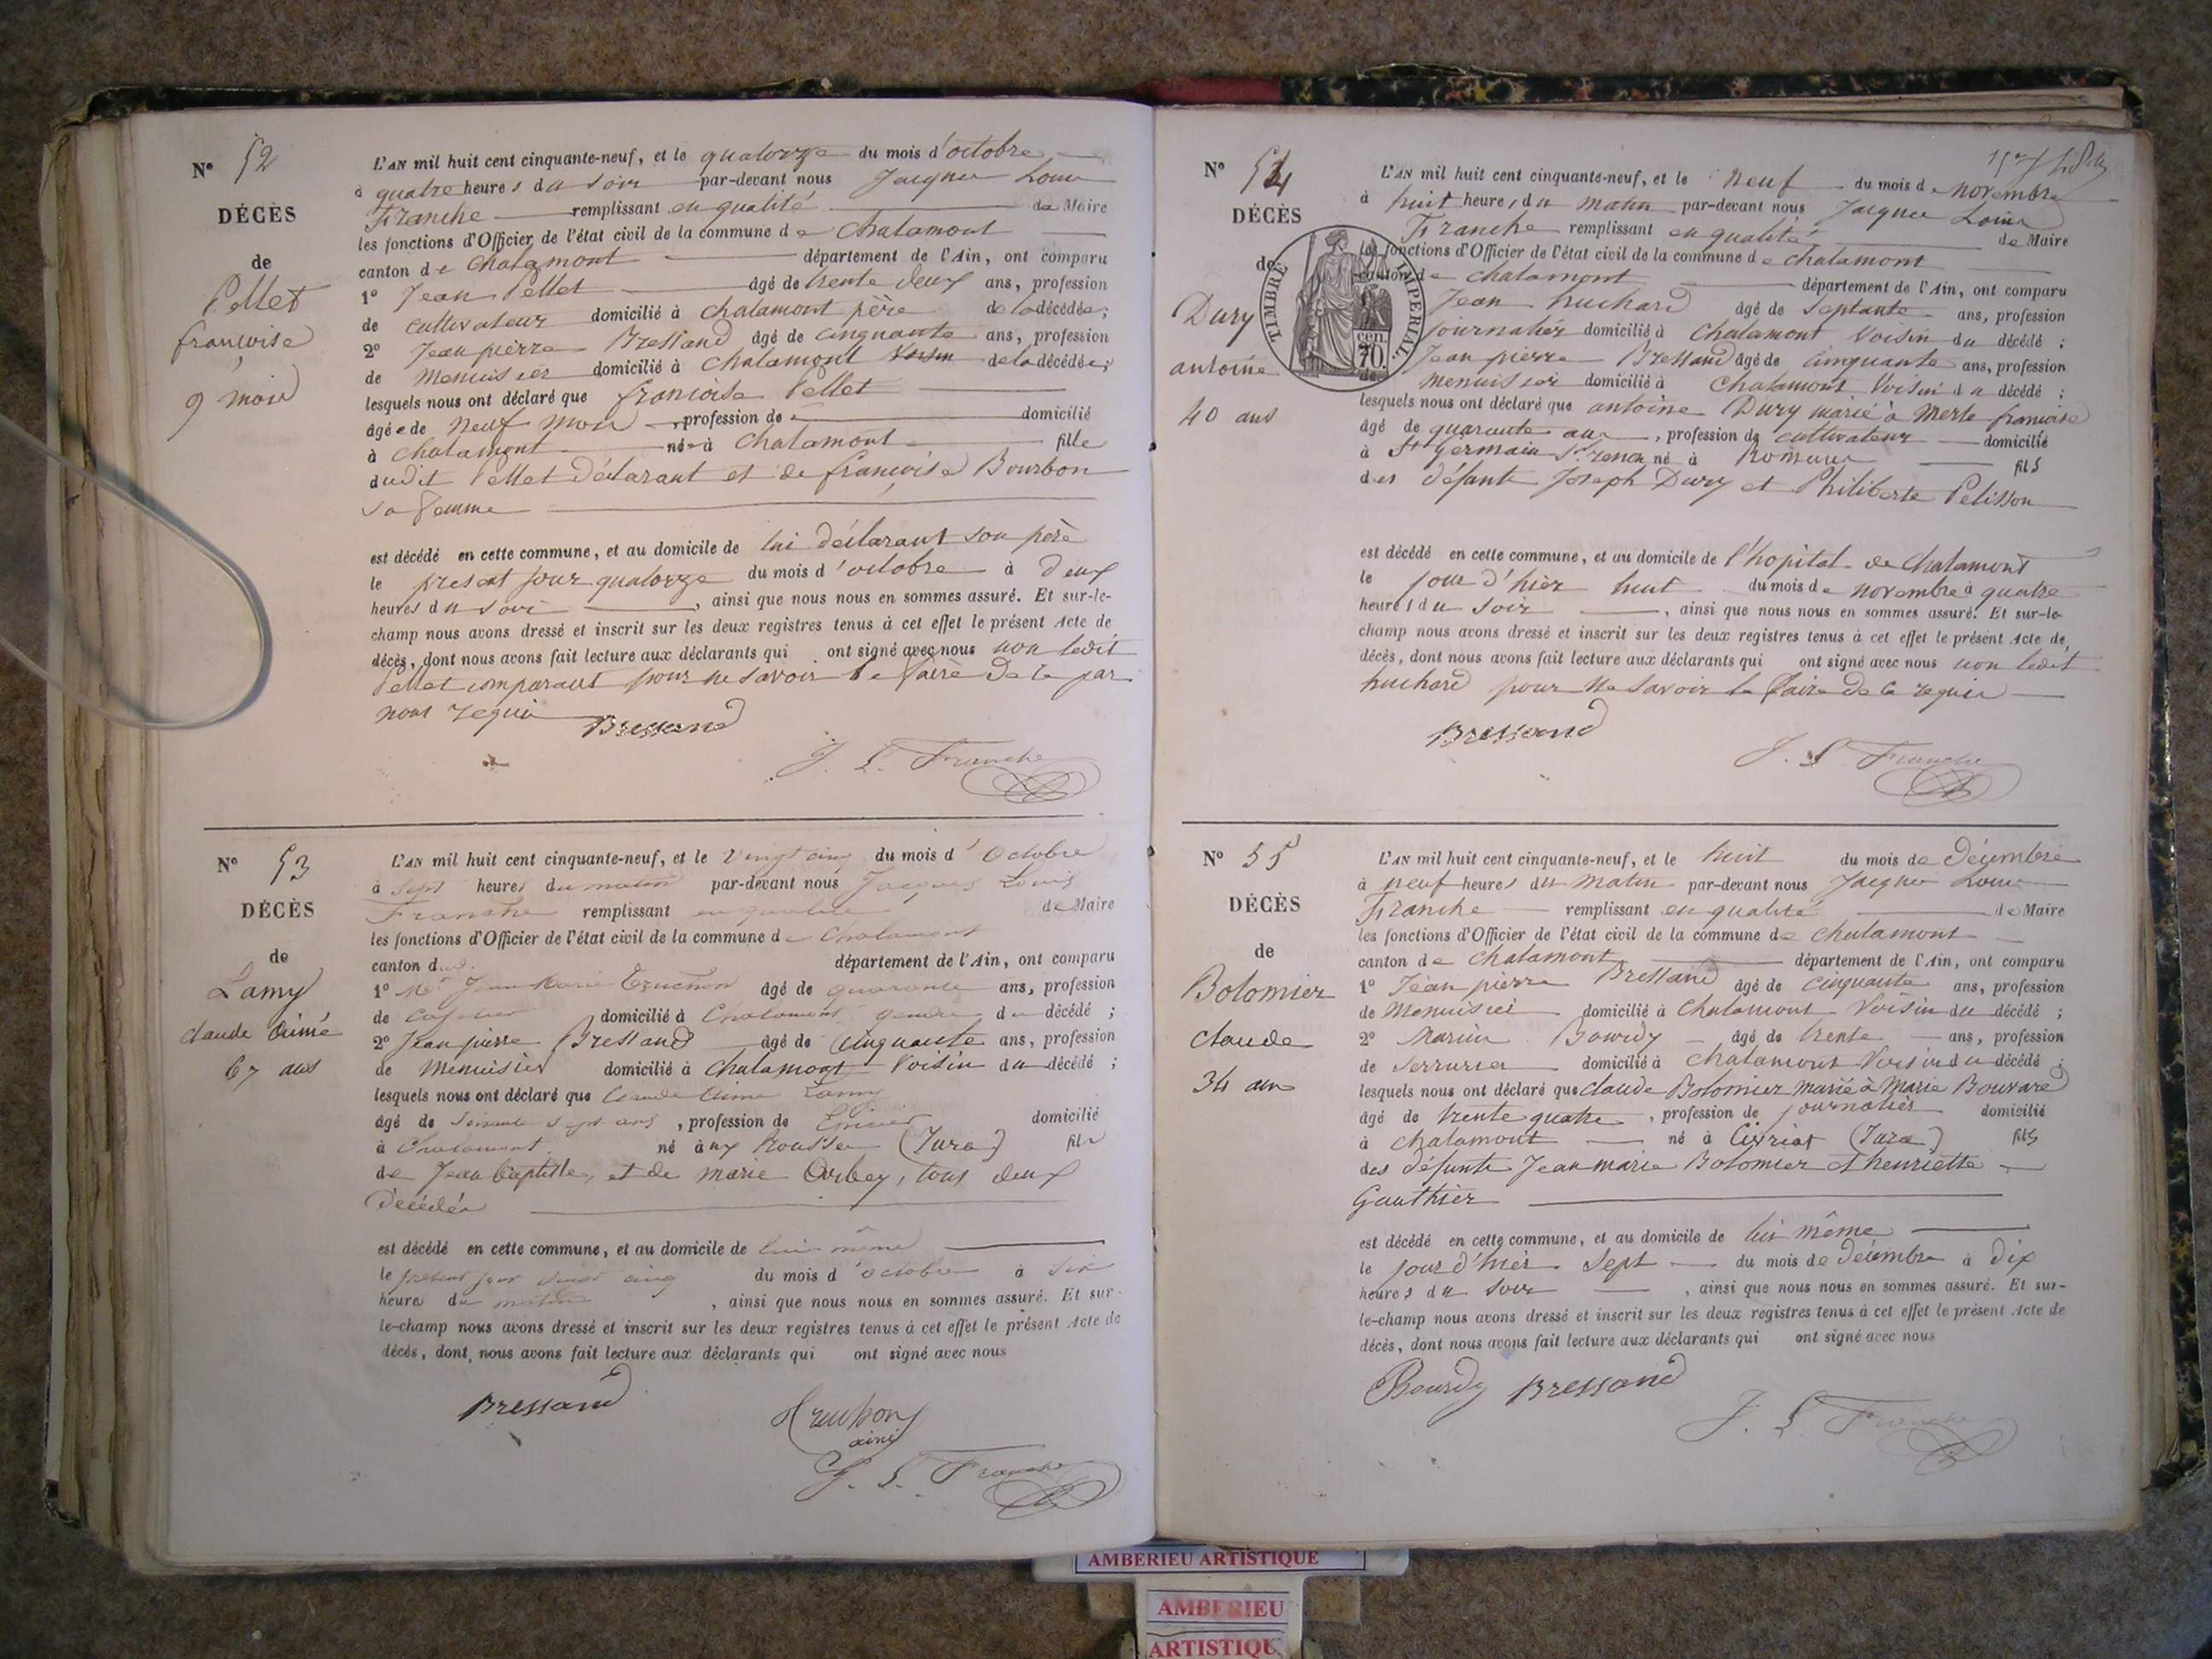 N° 52
DÉCÈS
de
Pellet
françoise
9 mois
L'AN mil huit cent cinquante-neuf, et le quatorze du mois d'octobre
à quatre heures du soir par-devant nous Jacques Louis
Franche remplissant en qualité de Maire
les fonctions d'Officier de l'état civil de la commune de Chalamont
canton de Chalamont département de l'Ain, ont comparu
1° Jean Pellet âgé de trente deux ans, profession
de cultivateur domicilié à Chalamont père de la décédée;
2° Jean pierre Bressand âgé de cinquante ans, profession
de Menuisier domicilié à Chalamont Voisin de la décédée;
lesquels nous ont déclaré que françoise Pellet
âgée de neuf mois, profession de domicilié
à Chalamont née à Chalamont fille
dudit Pellet Déclarant et de françoise Bourbon
sa femme
est décédé en cette commune, et au domicile de lui déclarant son père
le présent jour quatorze du mois d'octobre à Deux
heures du soir, ainsi que nous nous en sommes assuré. Et sur-le-
champ nous avons dressé et inscrit sur les deux registres tenus à cet effet le présent Acte de
décès, dont nous avons fait lecture aux déclarants qui ont signé avec nous non ledit
Pellet comparant pour ne savoir le faire De ce par
nous requis
Bressand
J. L. Franche
N° 53
DÉCÈS
de
Lamy
claude aimé
67 ans
L'AN mil huit cent cinquante-neuf, et le vingt cinq du mois d'Octobre
à sept heures du matin par-devant nous Jacques Louis
Franche remplissant en qualité de Maire
les fonctions d'Officier de l'état civil de la commune de Chalamont
canton dud. département de l'Ain, ont comparu
1° Mr Jean Marie âgé de quarante ans, profession
de domicilié à Chalamont gendre du décédé;
2° Jean pierre Bressand âgé de Cinquante ans, profession
de Menuisier domicilié à Chalamont Voisin du décédé;
lesquels nous ont déclaré que Claude Aimé Lamy
âgé de soixante sept ans, profession de domicilié
à Chalamont né aux Rousses (Jura) fils
de Jean baptiste, et de marie Orbey, tous deux
Décédés
est décédé en cette commune, et au domicile de lui même
le présent jour vingt cinq du mois d'octobre à six
heures du matin, ainsi que nous nous en sommes assuré. Et sur-
le-champ nous avons dressé et inscrit sur les deux registres tenus à cet effet le présent Acte de
décès, dont nous avons fait lecture aux déclarants qui ont signé avec nous
Bressand
ainé
J. L. Franche
N° 54
DÉCÈS
de
Dury
antoine
40 ans
TIMBRE IMPERIAL
70 cen.
L'AN mil huit cent cinquante-neuf, et le neuf du mois de novembre
à huit heures du matin par-devant nous Jacques Louis
Franche remplissant en qualité de Maire
les fonctions d'Officier de l'état civil de la commune de Chalamont
canton de Chalamont département de l'Ain, ont comparu
Jean huchard âgé de septante ans, profession
journalier domicilié à Chalamont Voisin du décédé;
Jean pierre Bressand âgé de cinquante ans, profession
de Menuisier domicilié à Chalamont Voisin du décédé;
lesquels nous ont déclaré que antoine Dury marié à Merle françoise
âgé de quarante ans, profession de cultivateur domicilié
à St Germain S. renon né à Romans fils
des défunts Joseph Dury et Philiberte Pelisson
est décédé en cette commune, et au domicile de l'hopital de Chalamont
le jour d'hier huit du mois de novembre à quatre
heures du soir, ainsi que nous nous en sommes assuré. Et sur-le-
champ nous avons dressé et inscrit sur les deux registres tenus à cet effet le présent Acte de
décès, dont nous avons fait lecture aux déclarants qui ont signé avec nous non ledit
huchard pour ne savoir le faire de ce requis
Bressand
J. L. Franche
N° 55
DÉCÈS
de
Bolomier
claude
34 ans
L'AN mil huit cent cinquante-neuf, et le huit du mois de Décembre
à neuf heures du matin par-devant nous Jacques Louis
Franche remplissant en qualité de Maire
les fonctions d'Officier de l'état civil de la commune de Chalamont
canton de Chalamont département de l'Ain, ont comparu
1° Jean pierre Bressand âgé de cinquante ans, profession
de Menuisier domicilié à Chalamont Voisin du décédé;
2° Marin Bourdy âgé de trente ans, profession
de Serrurier domicilié à Chalamont Voisin du décédé;
lesquels nous ont déclaré que claude Bolomier marié à Marie Bouvard
âgé de trente quatre, profession de journalier domicilié
à Chalamont né à Civriat (Jura) fils
des défunts Jean marie Bolomier et henriette
Gauthier
est décédé en cette commune, et au domicile de lui même
le jour d'hier Sept du mois de Décembre à Dix
heures du soir, ainsi que nous nous en sommes assuré. Et sur-
le-champ nous avons dressé et inscrit sur les deux registres tenus à cet effet le présent Acte de
décès, dont nous avons fait lecture aux déclarants qui ont signé avec nous
Bourdy Bressand
J. L. Franche
AMBERIEU ARTISTIQUE
AMBERIEU
ARTISTIQUE